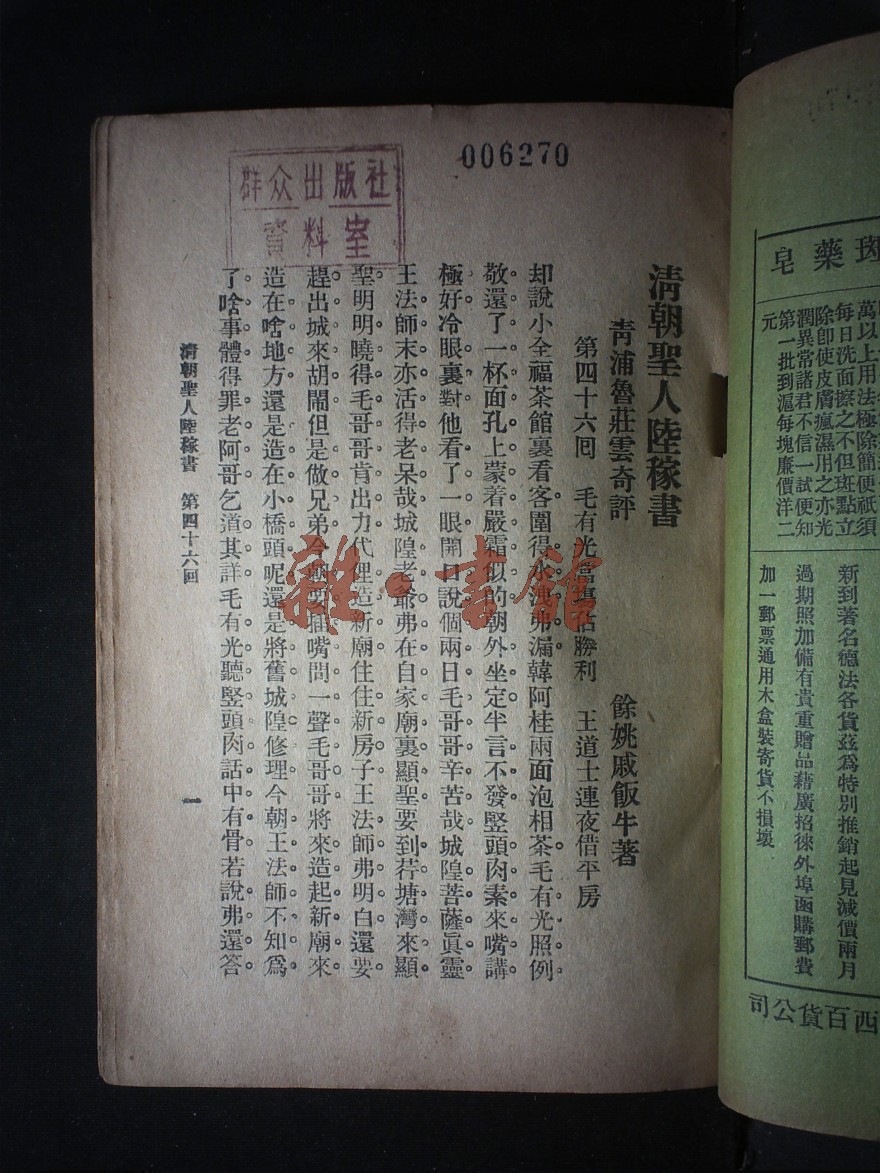 006270
群众出版社
資料室
清朝聖人陸稼書
青浦魯莊雲奇評
餘姚戚飯牛著
第四十六回 毛有光當場佔勝利 王道士連夜借平房
却說小全福茶館裏看客圍得水洩弗漏韓阿桂兩面泡相茶毛有光照例
敬還了一杯面孔上蒙着嚴霜似的朝外坐定半言不發竪頭肉素來嘴講
極好冷眼裏對他看了一眼開口說個兩日毛哥哥辛苦哉城隍菩薩眞靈
王法師末亦活得老呆哉城隍老爺弗在自家廟裏顯聖要到荐塘灣來顯
聖明明曉得毛哥哥肯出力代俚造新廟住住新房子王法師弗明白還要
趕出城來胡鬧但是做兄弟今朝要插嘴問一聲毛哥哥將來造起新廟來
造在啥地方還是造在小橋頭呢還是將舊城隍修理今朝王法師不知爲
了啥事體得罪老阿哥乞道其詳毛有光聽竪頭肉話中有骨若說弗還答
清朝聖人陸稼書 第四十六回 一
雜·書館
藥皂
萬以上用法極除簡便祇須
每日洗面擦之不但斑點立
除卽使皮膚瘋濕用之亦光
潤異常諸君不信一試便知
第一批到滬每塊廉價洋二
元
新到著名德法各貨茲爲特別推銷起見減價兩月
過期照加備有貴重贈品藉廣招徠外埠函購郵費
加一郵票通用木盒裝寄貨不損壞
西百貨公司